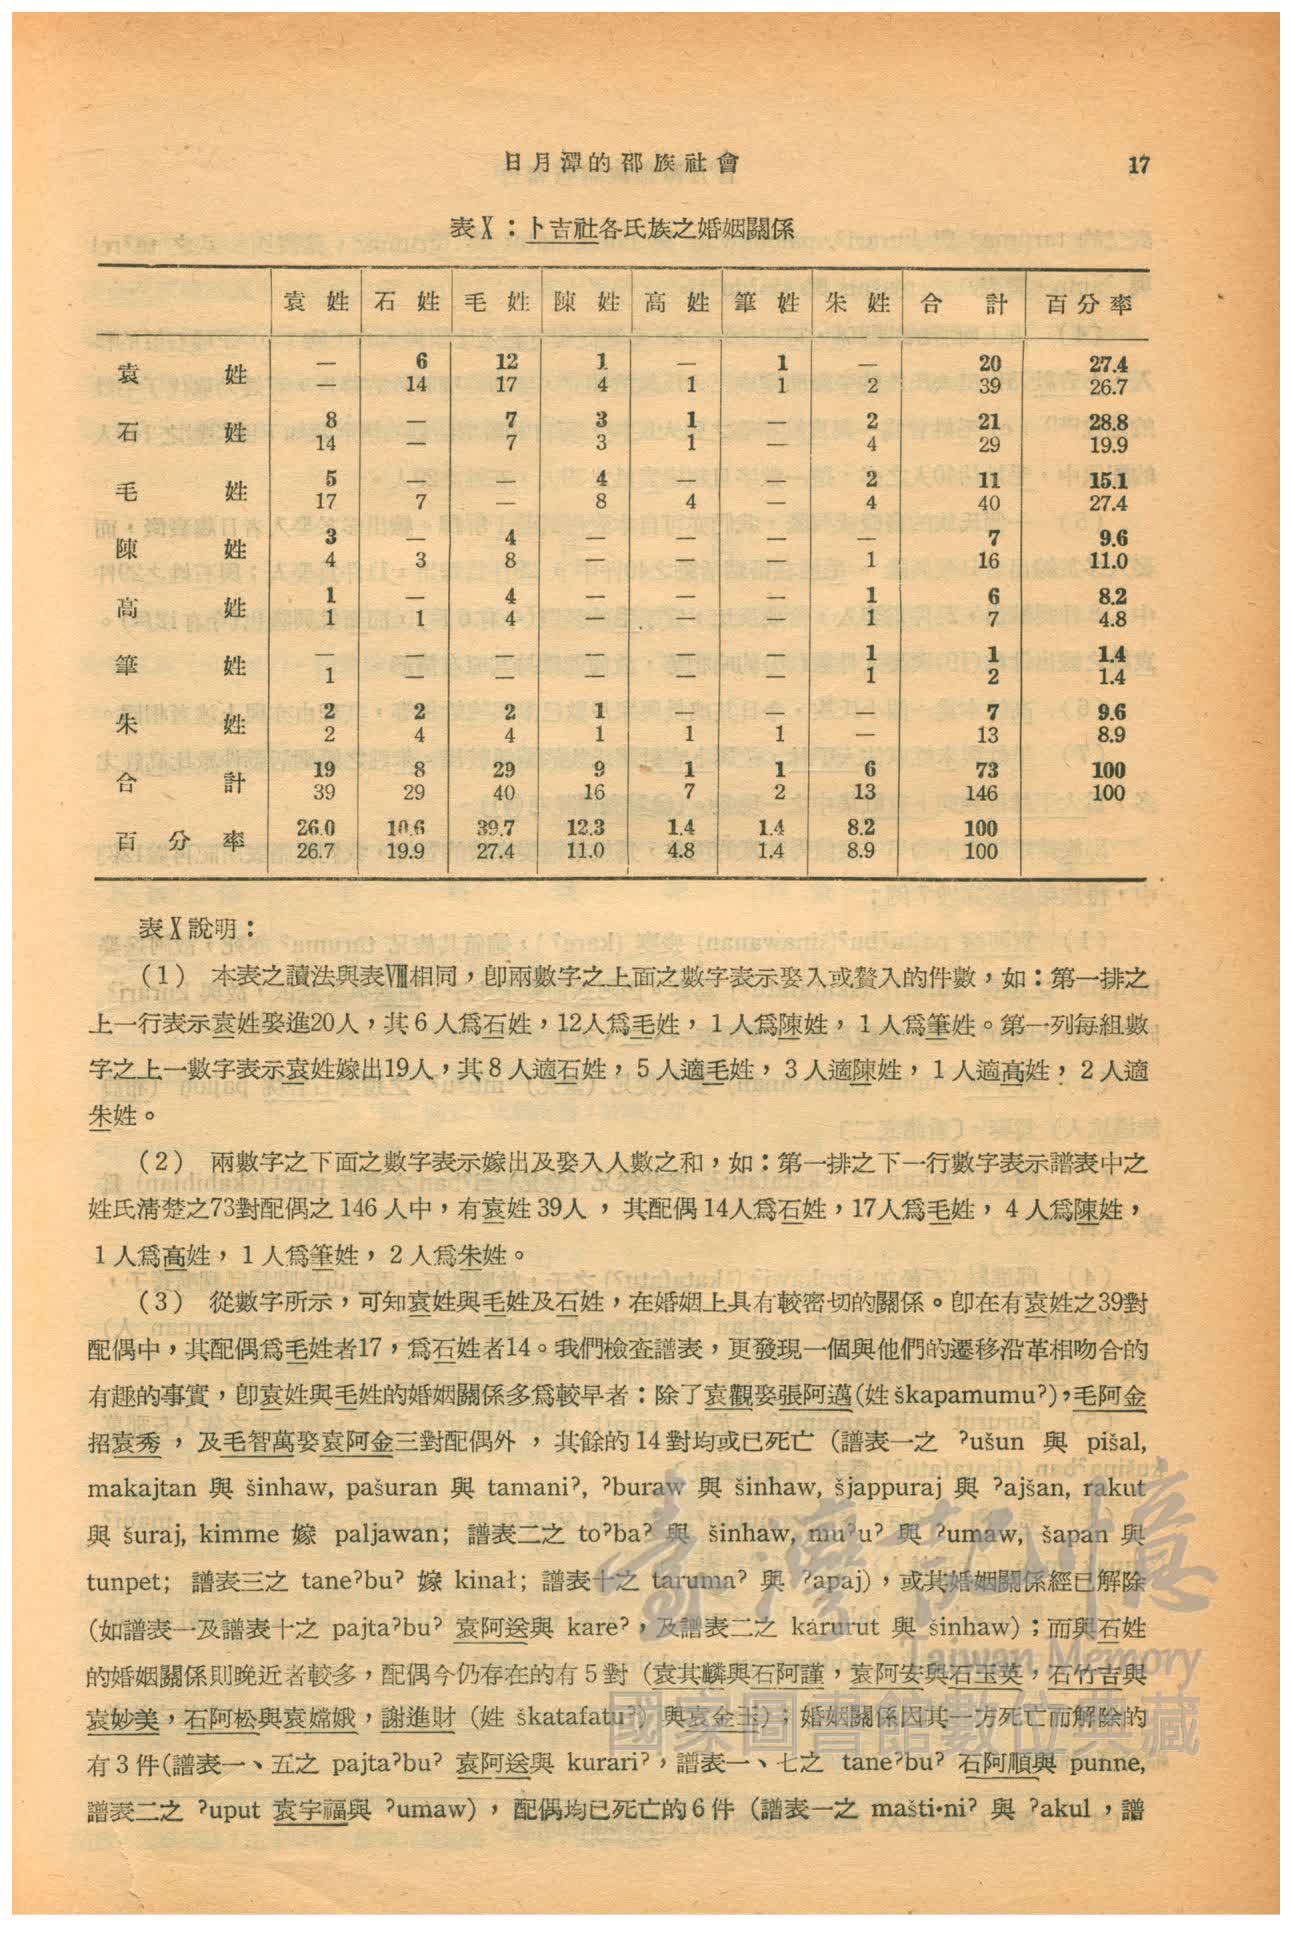 日月潭的邵族社會 17
表Ⅹ：卜吉社各氏族之婚姻關係
袁姓 石姓 毛姓 陳姓 高姓 筆姓 朱姓 合計 百分率
袁姓 — 6 12 1 — 1 — 20 27.4
— 14 17 4 1 1 2 39 26.7
石姓 8 — 7 3 1 — 2 21 28.8
14 — 7 3 1 — 4 29 19.9
毛姓 5 — — 4 — — 2 11 15.1
17 7 — 8 4 — 4 40 27.4
陳姓 3 — 4 — — — — 7 9.6
4 3 8 — — — 1 16 11.0
高姓 1 — 4 — — — 1 6 8.2
1 1 4 — — — 1 7 4.8
筆姓 — — — — — — 1 1 1.4
1 — — — — — 1 2 1.4
朱姓 2 2 2 1 — — — 7 9.6
2 4 4 1 1 1 — 13 8.9
合計 19 8 29 9 1 1 6 73 100
39 29 40 16 7 2 13 146 100
百分率 26.0 10.6 39.7 12.3 1.4 1.4 8.2 100
26.7 19.9 27.4 11.0 4.8 1.4 8.9 100
表Ⅹ說明：
(1) 本表之讀法與表Ⅷ相同，卽兩數字之上面之數字表示娶入或贅入的件數，如：第一排之
上一行表示袁姓娶進20人，其6人爲石姓，12人爲毛姓，1人爲陳姓，1人爲筆姓。第一列每組數
字之上一數字表示袁姓嫁出19人，其8人適石姓，5人適毛姓，3人適陳姓，1人適高姓，2人適
朱姓。
(2) 兩數字之下面之數字表示嫁出及娶入人數之和，如：第一排之下一行數字表示譜表中之
姓氏淸楚之73對配偶之146人中，有袁姓39人，其配偶14人爲石姓，17人爲毛姓，4人爲陳姓，
1人爲高姓，1人爲筆姓，2人爲朱姓。
(3) 從數字所示，可知袁姓與毛姓及石姓，在婚姻上具有較密切的關係。卽在有袁姓之39對
配偶中，其配偶爲毛姓者17，爲石姓者14。我們檢查譜表，更發現一個與他們的遷移沿革相吻合的
有趣的事實，卽袁姓與毛姓的婚姻關係多爲較早者：除了袁觀娶張阿邁(姓škapamumuˀ)，毛阿金
招袁秀，及毛智萬娶袁阿金三對配偶外，其餘的14對均或已死亡 (譜表一之 ˀušun 與 pišal,
makajtan 與 šinhaw, pašuran 與 tamaniˀ, ˀburaw 與 šinhaw, šjappuraj 與 ˀajšan, rakut
與 šuraj, kimme 嫁 paljawan; 譜表二之 toˀbaˀ 與 šinhaw, muˀuˀ 與 ˀumaw, šapan 與
tunpet; 譜表三之 taneˀbuˀ 嫁 kinał; 譜表十之 tarumaˀ 與 ˀapaj)，或其婚姻關係經已解除
(如譜表一及譜表十之 pajtaˀbuˀ 袁阿送與 kareˀ，及譜表二之 karurut 與 šinhaw)；而與石姓
的婚姻關係則晚近者較多，配偶今仍存在的有5對 (袁其麟與石阿謹，袁阿安與石玉英，石竹吉與
袁妙美，石阿松與袁嫦娥，謝進財 (姓 škatafatuˀ) 與袁金玉)；婚姻關係因其一方死亡而解除的
有3件(譜表一、五之 pajtaˀbuˀ 袁阿送與 kurariˀ，譜表一、七之 taneˀbuˀ 石阿順與 punne,
譜表二之 ˀuput 袁宇福與 ˀumaw)，配偶均已死亡的6件 (譜表一之 mašti·niˀ 與 ˀakul，譜
臺灣記憶
Taiwan Memory
國家圖書館數位典藏